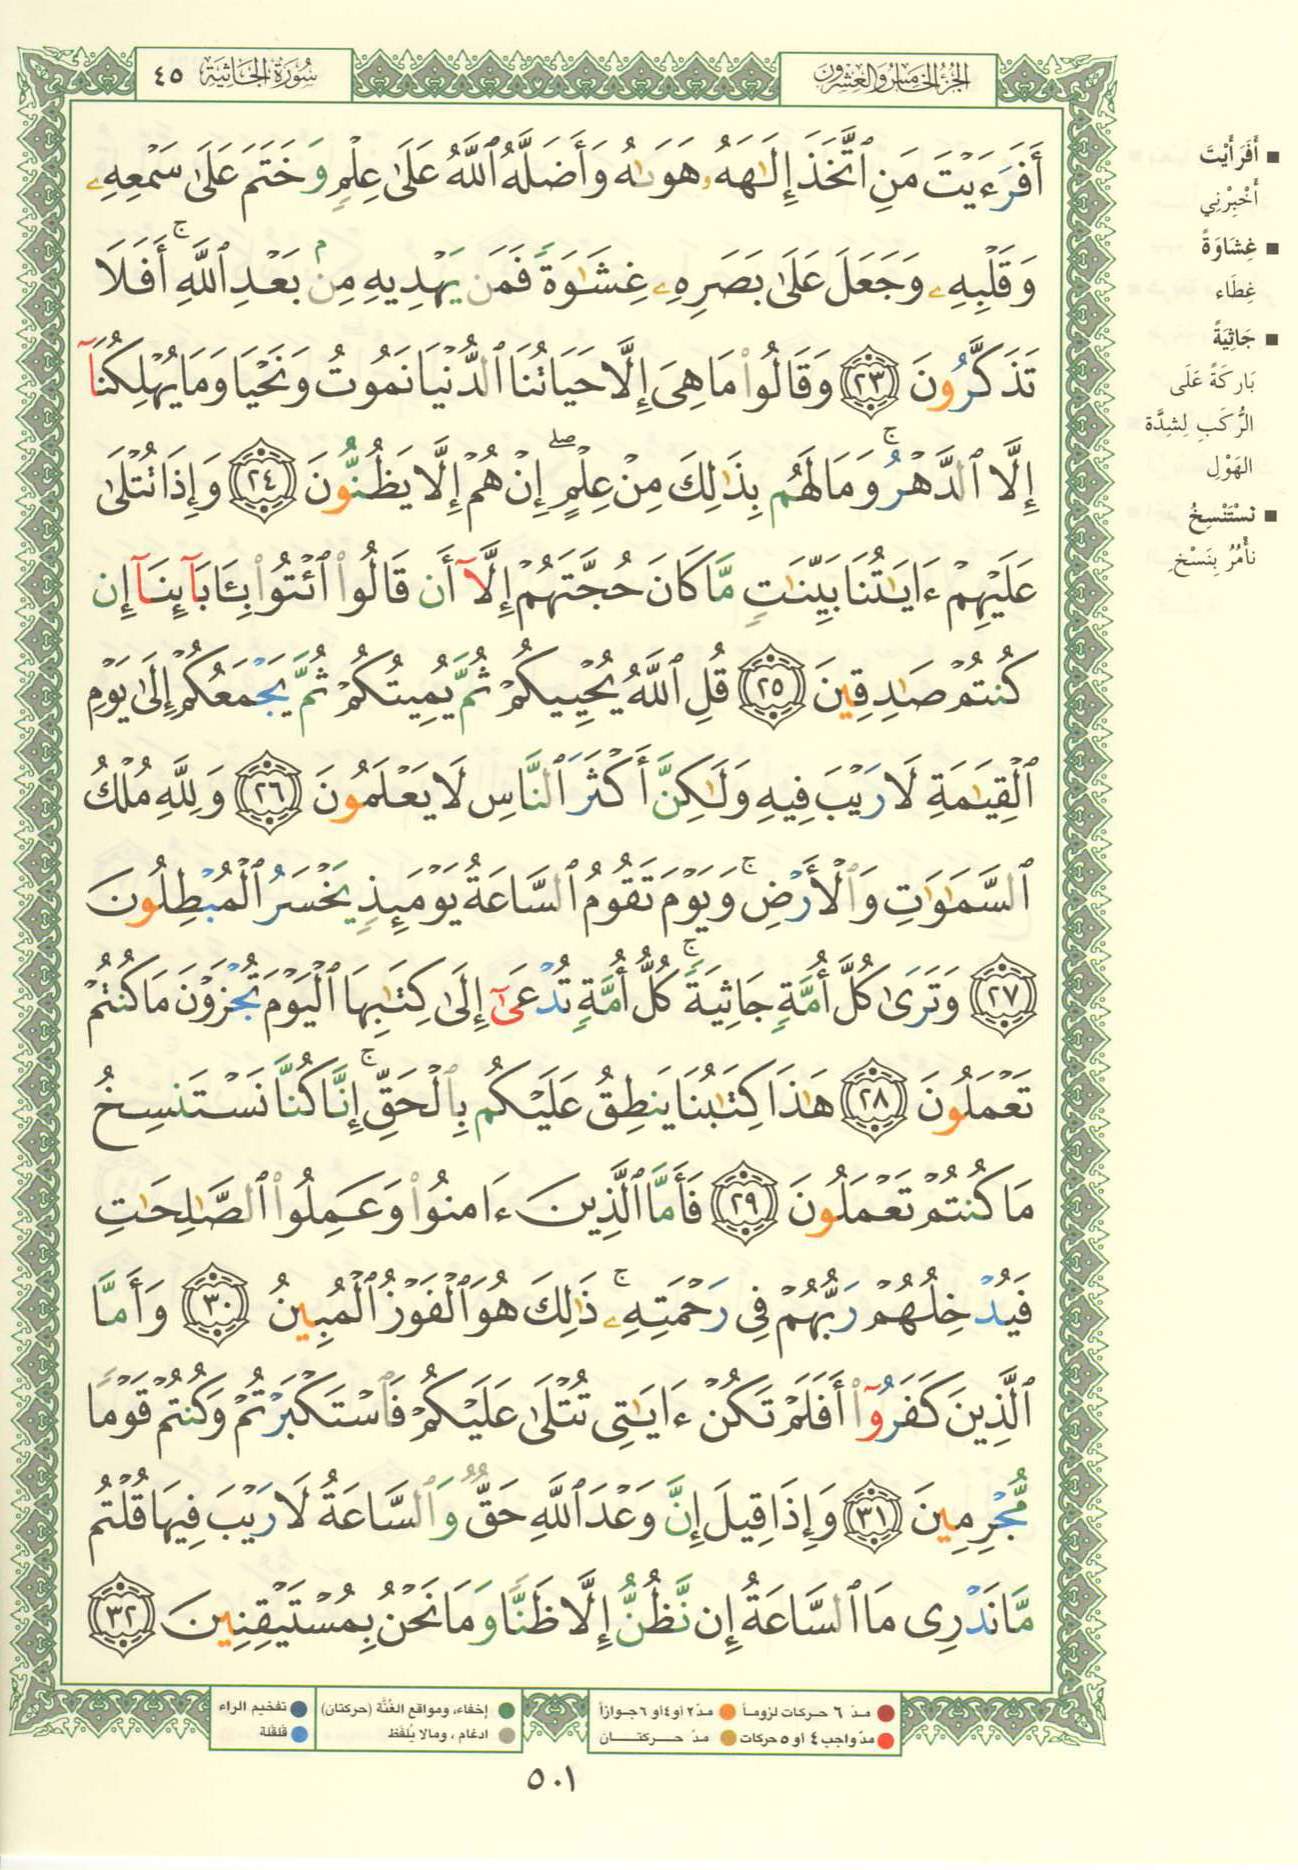 الجزء الخامس والعشرون
سورة الجاثية ٤٥
أَفَرَءَيْتَ مَنِ ٱتَّخَذَ إِلَٰهَهُۥ هَوَىٰهُ وَأَضَلَّهُ ٱللَّهُ عَلَىٰ عِلْمٍ وَخَتَمَ عَلَىٰ سَمْعِهِۦ
وَقَلْبِهِۦ وَجَعَلَ عَلَىٰ بَصَرِهِۦ غِشَٰوَةً فَمَن يَهْدِيهِ مِنۢ بَعْدِ ٱللَّهِ ۚ أَفَلَا
تَذَكَّرُونَ ٢٣ وَقَالُوا۟ مَا هِىَ إِلَّا حَيَاتُنَا ٱلدُّنْيَا نَمُوتُ وَنَحْيَا وَمَا يُهْلِكُنَآ
إِلَّا ٱلدَّهْرُ ۚ وَمَا لَهُم بِذَٰلِكَ مِنْ عِلْمٍ ۖ إِنْ هُمْ إِلَّا يَظُنُّونَ ٢٤ وَإِذَا تُتْلَىٰ
عَلَيْهِمْ ءَايَٰتُنَا بَيِّنَٰتٍ مَّا كَانَ حُجَّتَهُمْ إِلَّآ أَن قَالُوا۟ ٱئْتُوا۟ بِـَٔابَآئِنَآ إِن
كُنتُمْ صَٰدِقِينَ ٢٥ قُلِ ٱللَّهُ يُحْيِيكُمْ ثُمَّ يُمِيتُكُمْ ثُمَّ يَجْمَعُكُمْ إِلَىٰ يَوْمِ
ٱلْقِيَٰمَةِ لَا رَيْبَ فِيهِ وَلَٰكِنَّ أَكْثَرَ ٱلنَّاسِ لَا يَعْلَمُونَ ٢٦ وَلِلَّهِ مُلْكُ
ٱلسَّمَٰوَٰتِ وَٱلْأَرْضِ ۚ وَيَوْمَ تَقُومُ ٱلسَّاعَةُ يَوْمَئِذٍ يَخْسَرُ ٱلْمُبْطِلُونَ
٢٧ وَتَرَىٰ كُلَّ أُمَّةٍ جَاثِيَةً ۚ كُلُّ أُمَّةٍ تُدْعَىٰٓ إِلَىٰ كِتَٰبِهَا ٱلْيَوْمَ تُجْزَوْنَ مَا كُنتُمْ
تَعْمَلُونَ ٢٨ هَٰذَا كِتَٰبُنَا يَنطِقُ عَلَيْكُم بِٱلْحَقِّ ۚ إِنَّا كُنَّا نَسْتَنسِخُ
مَا كُنتُمْ تَعْمَلُونَ ٢٩ فَأَمَّا ٱلَّذِينَ ءَامَنُوا۟ وَعَمِلُوا۟ ٱلصَّٰلِحَٰتِ
فَيُدْخِلُهُمْ رَبُّهُمْ فِى رَحْمَتِهِۦ ۚ ذَٰلِكَ هُوَ ٱلْفَوْزُ ٱلْمُبِينُ ٣٠ وَأَمَّا
ٱلَّذِينَ كَفَرُوٓا۟ أَفَلَمْ تَكُنْ ءَايَٰتِى تُتْلَىٰ عَلَيْكُمْ فَٱسْتَكْبَرْتُمْ وَكُنتُمْ قَوْمًا
مُّجْرِمِينَ ٣١ وَإِذَا قِيلَ إِنَّ وَعْدَ ٱللَّهِ حَقٌّ وَٱلسَّاعَةُ لَا رَيْبَ فِيهَا قُلْتُم
مَّا نَدْرِى مَا ٱلسَّاعَةُ إِن نَّظُنُّ إِلَّا ظَنًّا وَمَا نَحْنُ بِمُسْتَيْقِنِينَ ٣٢
■ أَفَرَأَيْتَ
أَخْبِرْنِي
■ غِشَاوَةً
غِطَاء
■ جَاثِيَةً
بَارِكَةً عَلَى
الرُّكَبِ لِشِدَّة
الهَوْل
■ نَسْتَنْسِخُ
نَأْمُرُ بِنَسْخِ
مدّ ٦ حركات لزوماً مدّ ٢ أو ٤ أو ٦ جوازاً
مدّ واجب ٤ أو ٥ حركات مدّ حركتان
إخفاء، ومواقع الغُنَّة (حركتان) تفخيم الراء
ادغام، ومالا يُلفَظ قلقلة
٥٠١